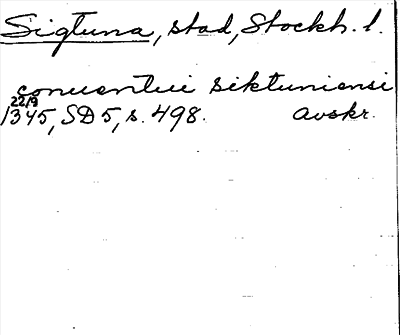 Sigtuna, stad, Stockh. l.
conuentui siktuniensi
22/9
1345, SD 5, s. 498. Avskr.